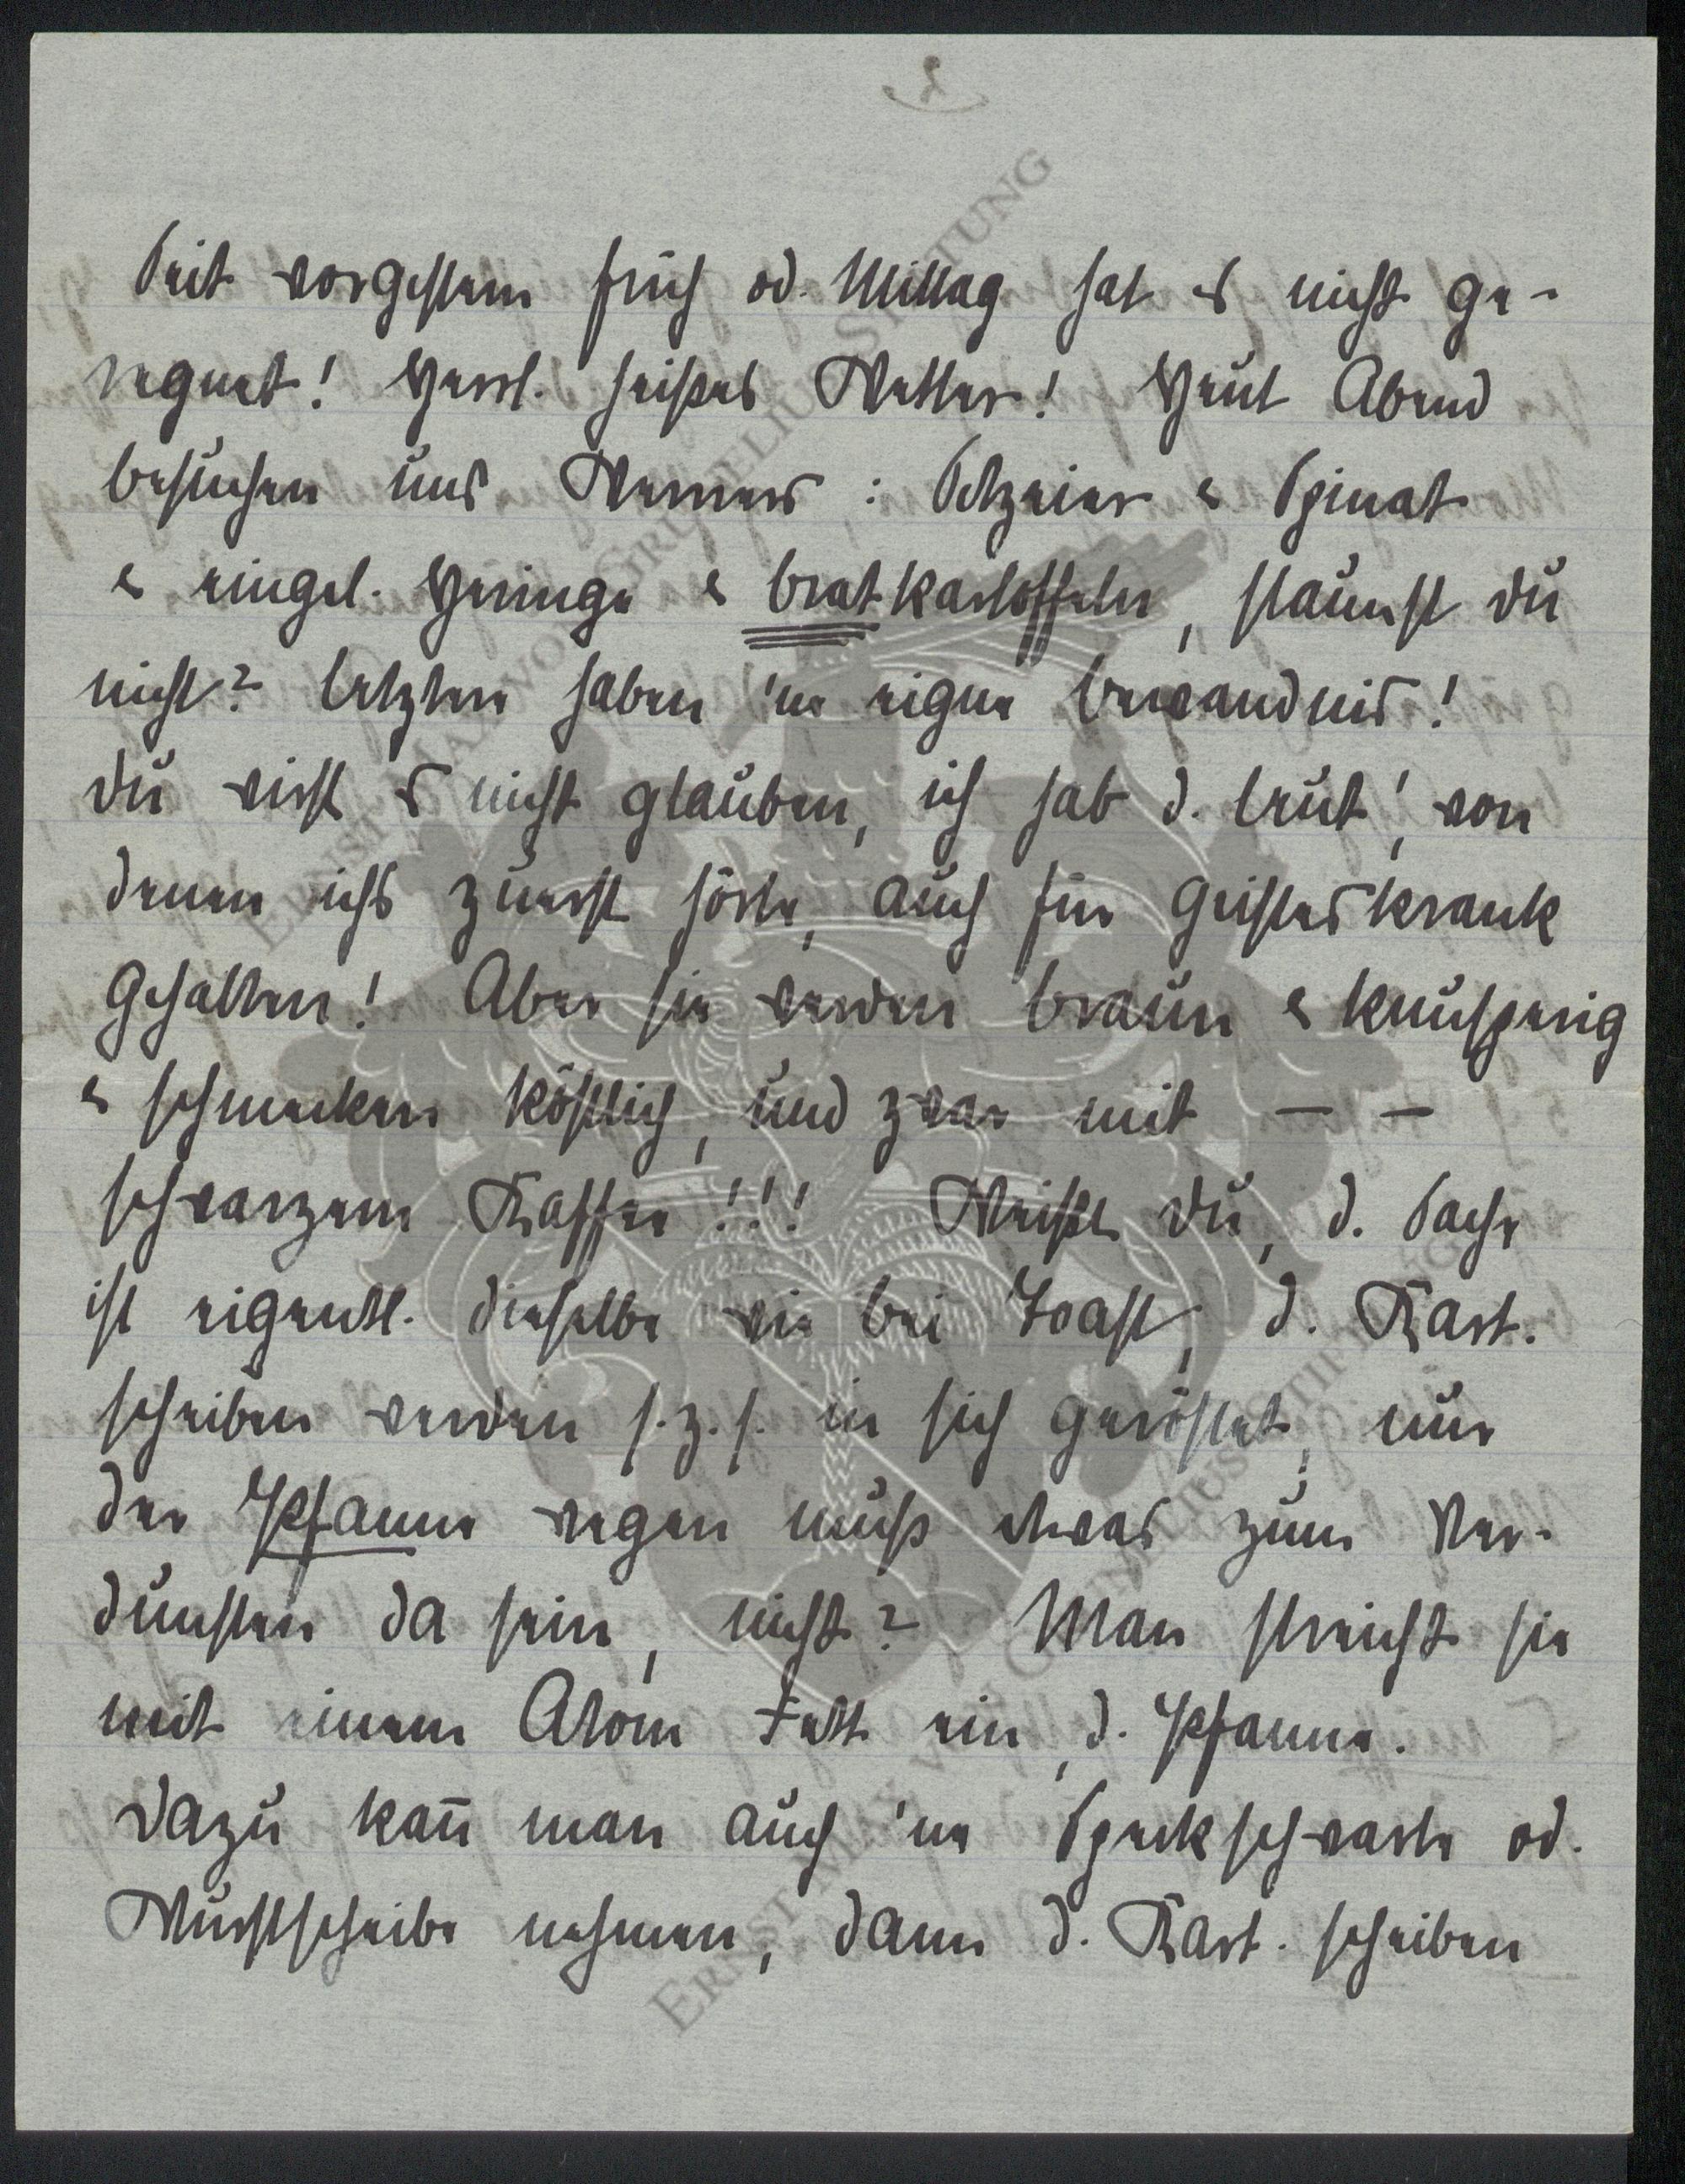 2
Seit vorgestern früh od. Mittag hat es nicht ge-
regnet! Herrl. heißes Wetter! Heut Abend
besuchen uns Werners : Setzeier & Spinat
& eingel. Heringe & Bratkartoffeln, staunst Du
nicht? Letztere haben 'ne eigne Bewandnis!
Du wirst es nicht glauben, ich hab d. Leut', von
denen ichs zuerst hörte, auch für geisteskrank
gehalten! Aber sie werden braun & knusperig
& schmecken köstlich, und zwar mit — —
schwarzem Kaffee!!! Weißt Du, d. Sache
ist eigentl. dieselbe wie bei Toast, d. Kart.
scheiben werden s.z.s. in sich geröstet, nur
der Pfanne wegen muß etwas zum Ver-
dunsten da sein, nicht? Man streicht sie
mit einem Atom Fett ein, d. Pfanne.
Dazu kan̄ man auch 'ne Speckschwarte od.
Wurstscheibe nehmen, dann d. Kart. scheiben
ERNST MAX VON GRUNELIUS-STIFTUNG
ERNST MAX VON GRUNELIUS-STIFTUNG